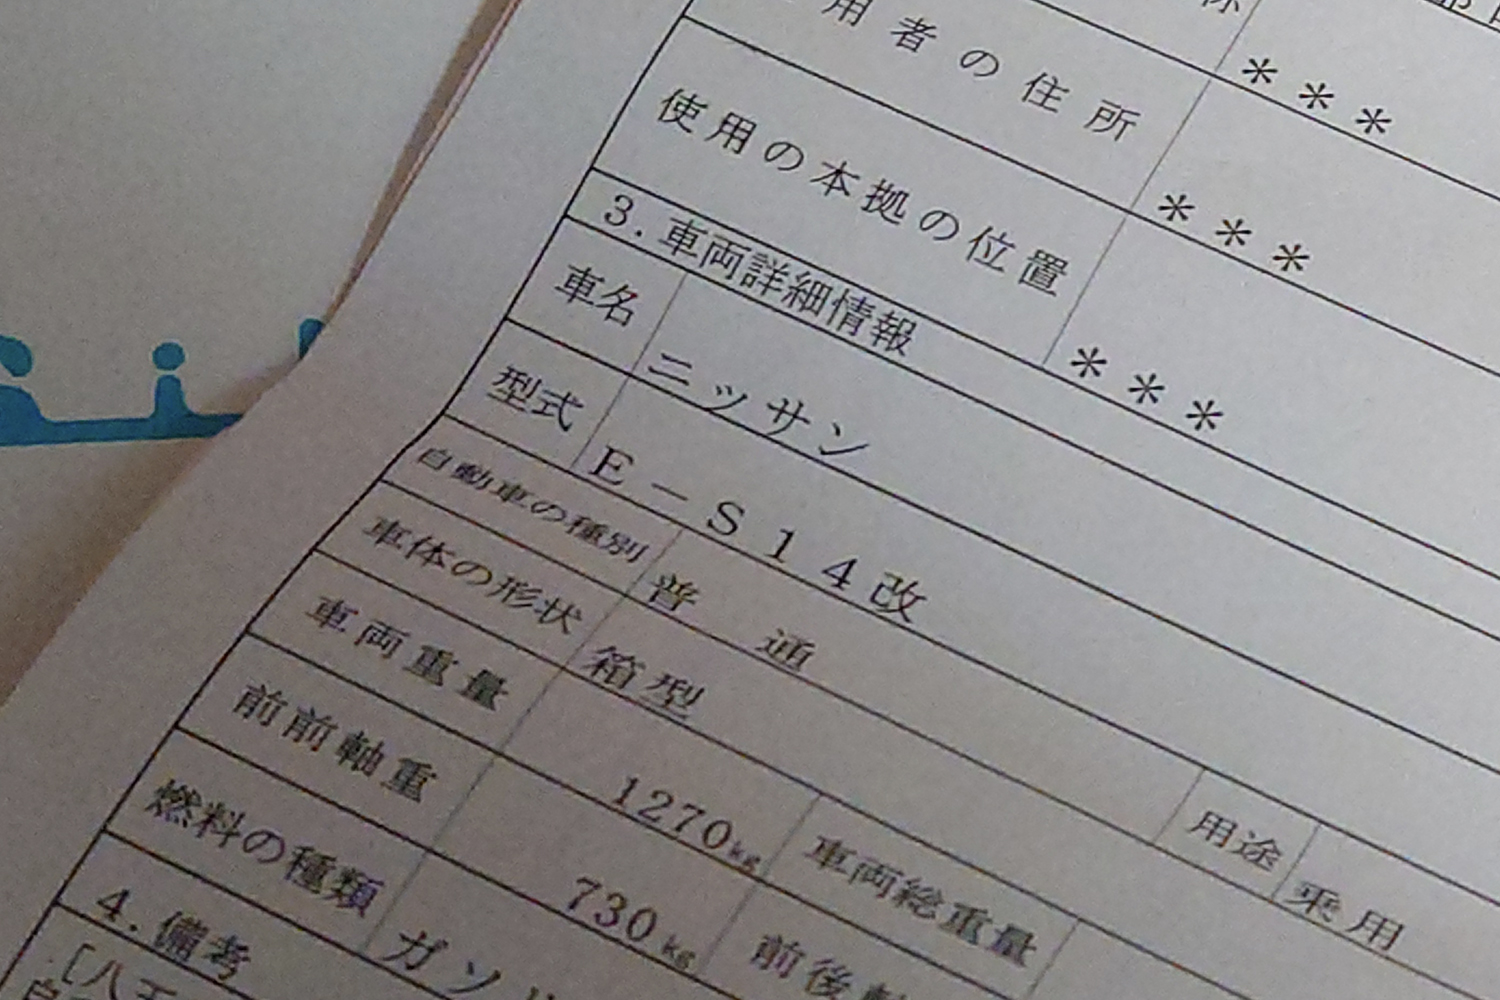 用者の住所
＊＊＊
使用の本拠の位置
＊＊＊
3.車両詳細情報
＊＊＊
車名 ニッサン
型式 E－S14改
自動車の種別 普 通 用途 乗用
車体の形状 箱型
車両重量 1270kg 車両総重量
前前軸重 730kg 前後軸
燃料の種類 ガソ
4.備考